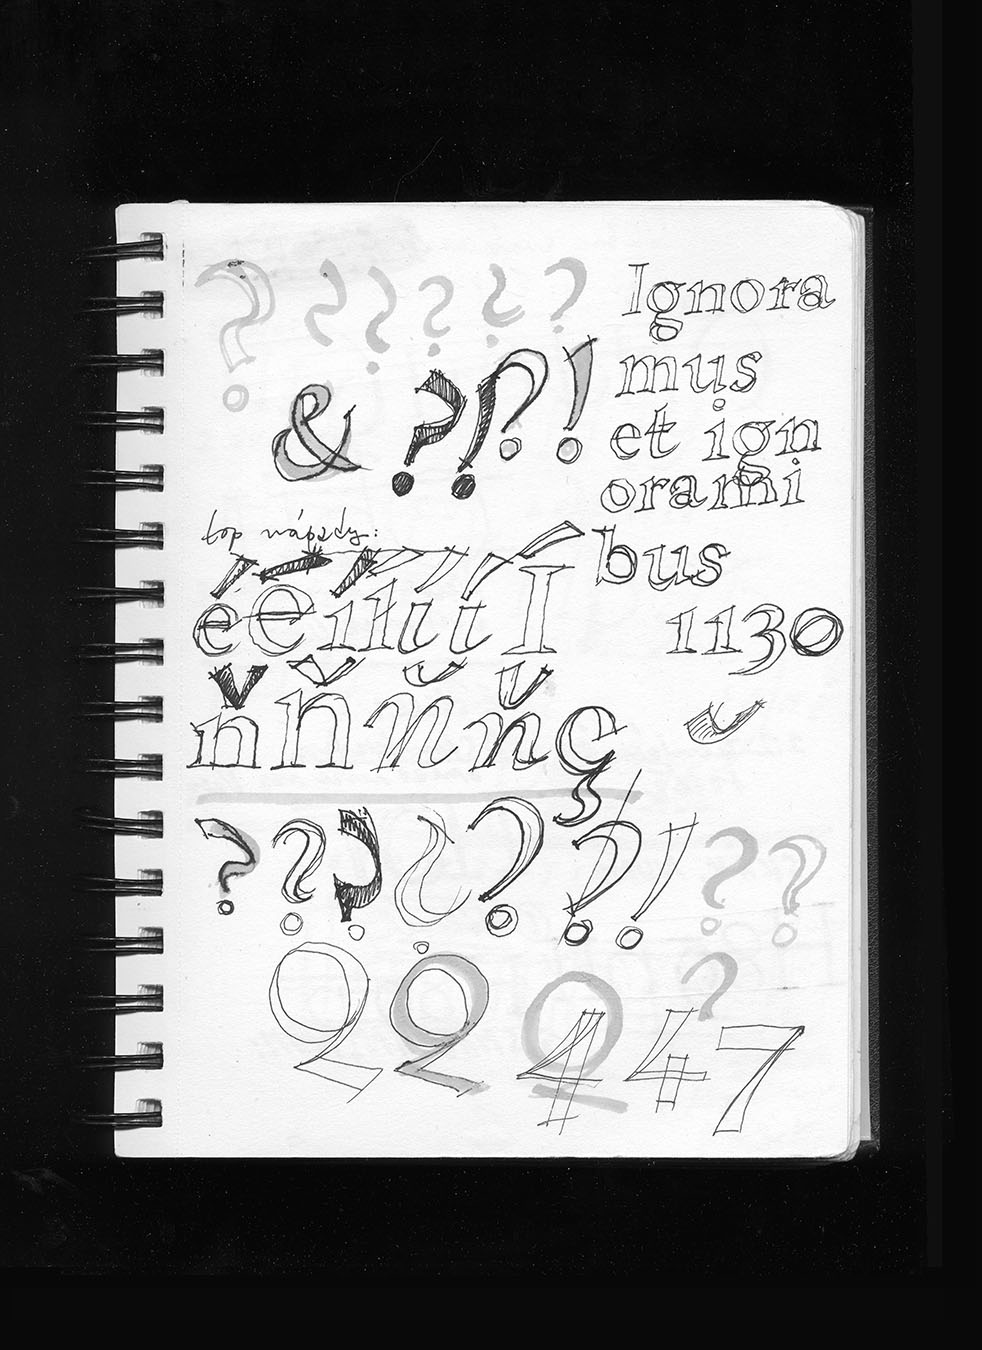 ? ? ? ? ? ?
& ? ! ? !
Ignora
mus
et ign
orami
bus
1130
top nápady:
é é í ł í í Í
ň ň ň ň ę
? ? ? ¿ ? ? ! ? ?
2 2 2 4 4 7 ?